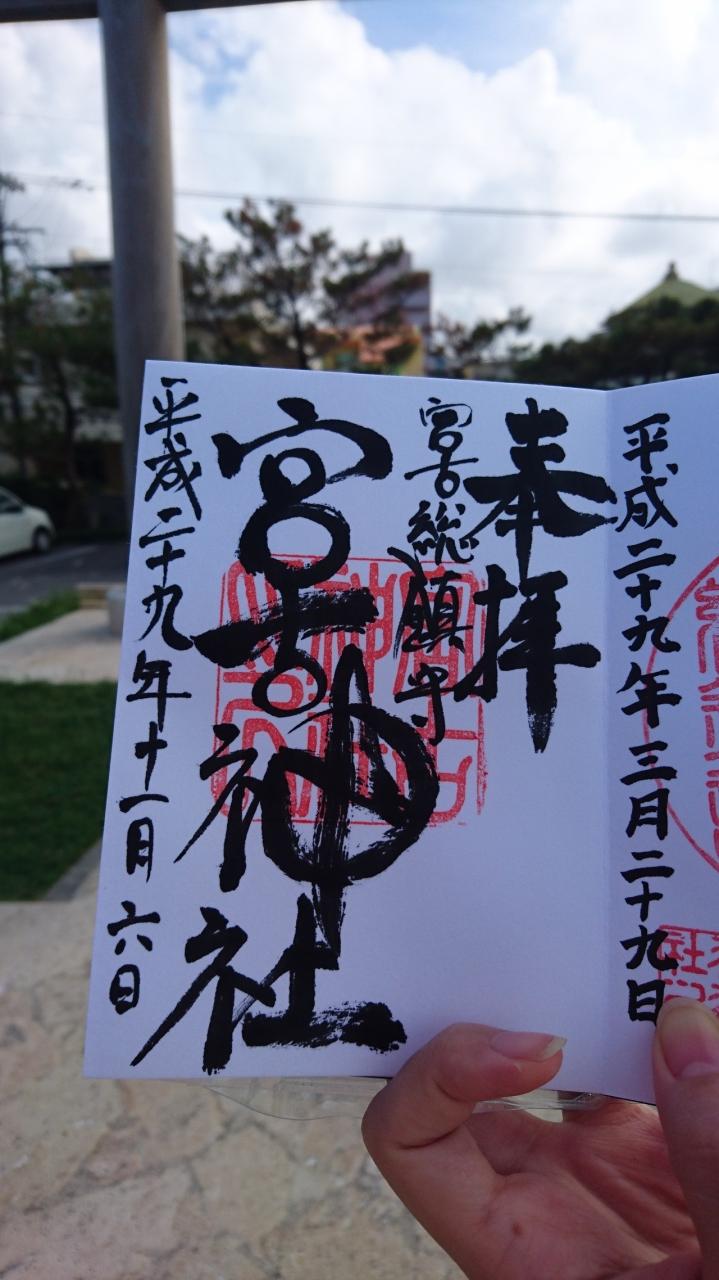 平成二十九年三月二十九日
奉拝
宮古総鎮守
宮古神社
平成二十九年十一月六日